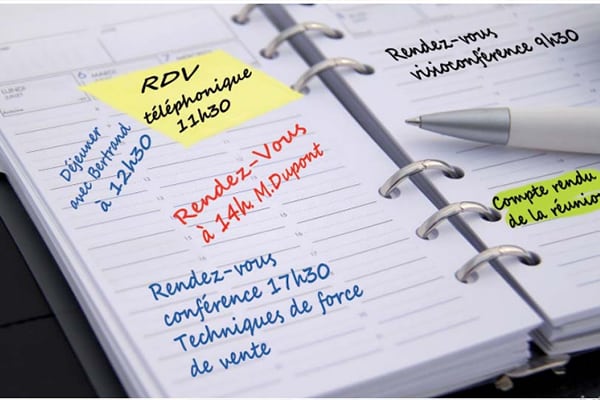 RDV
téléphonique
11h30
Déjeuner
avec Bertrand
à 12h30
Rendez-Vous
à 14h M.Dupont
Rendez-vous
conférence 17h30
Techniques de force
de vente
Rendez-vous
visioconférence 9h30
Compte rendu
de la réunion